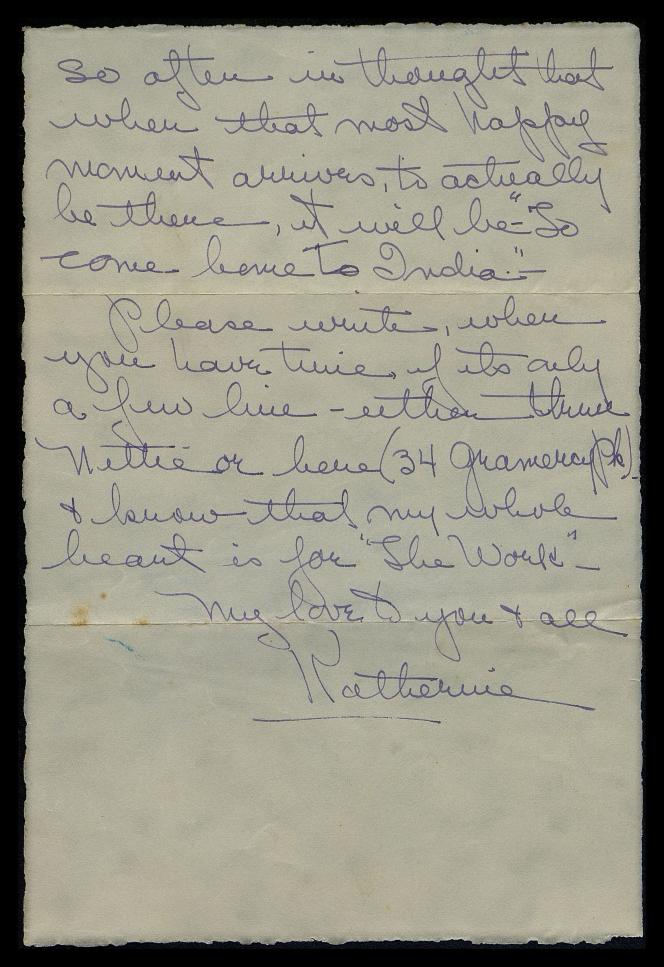 so often in thought that
when that most happy
moment arrives, to actually
be there, it will be - "To
come home to India." -
Please write, when
you have time, if its only
a few line - either thru
Nettie or here (34 Gramercy Pk)
& know that my whole
heart is for "The Work" -
My love to you & all
Katherine